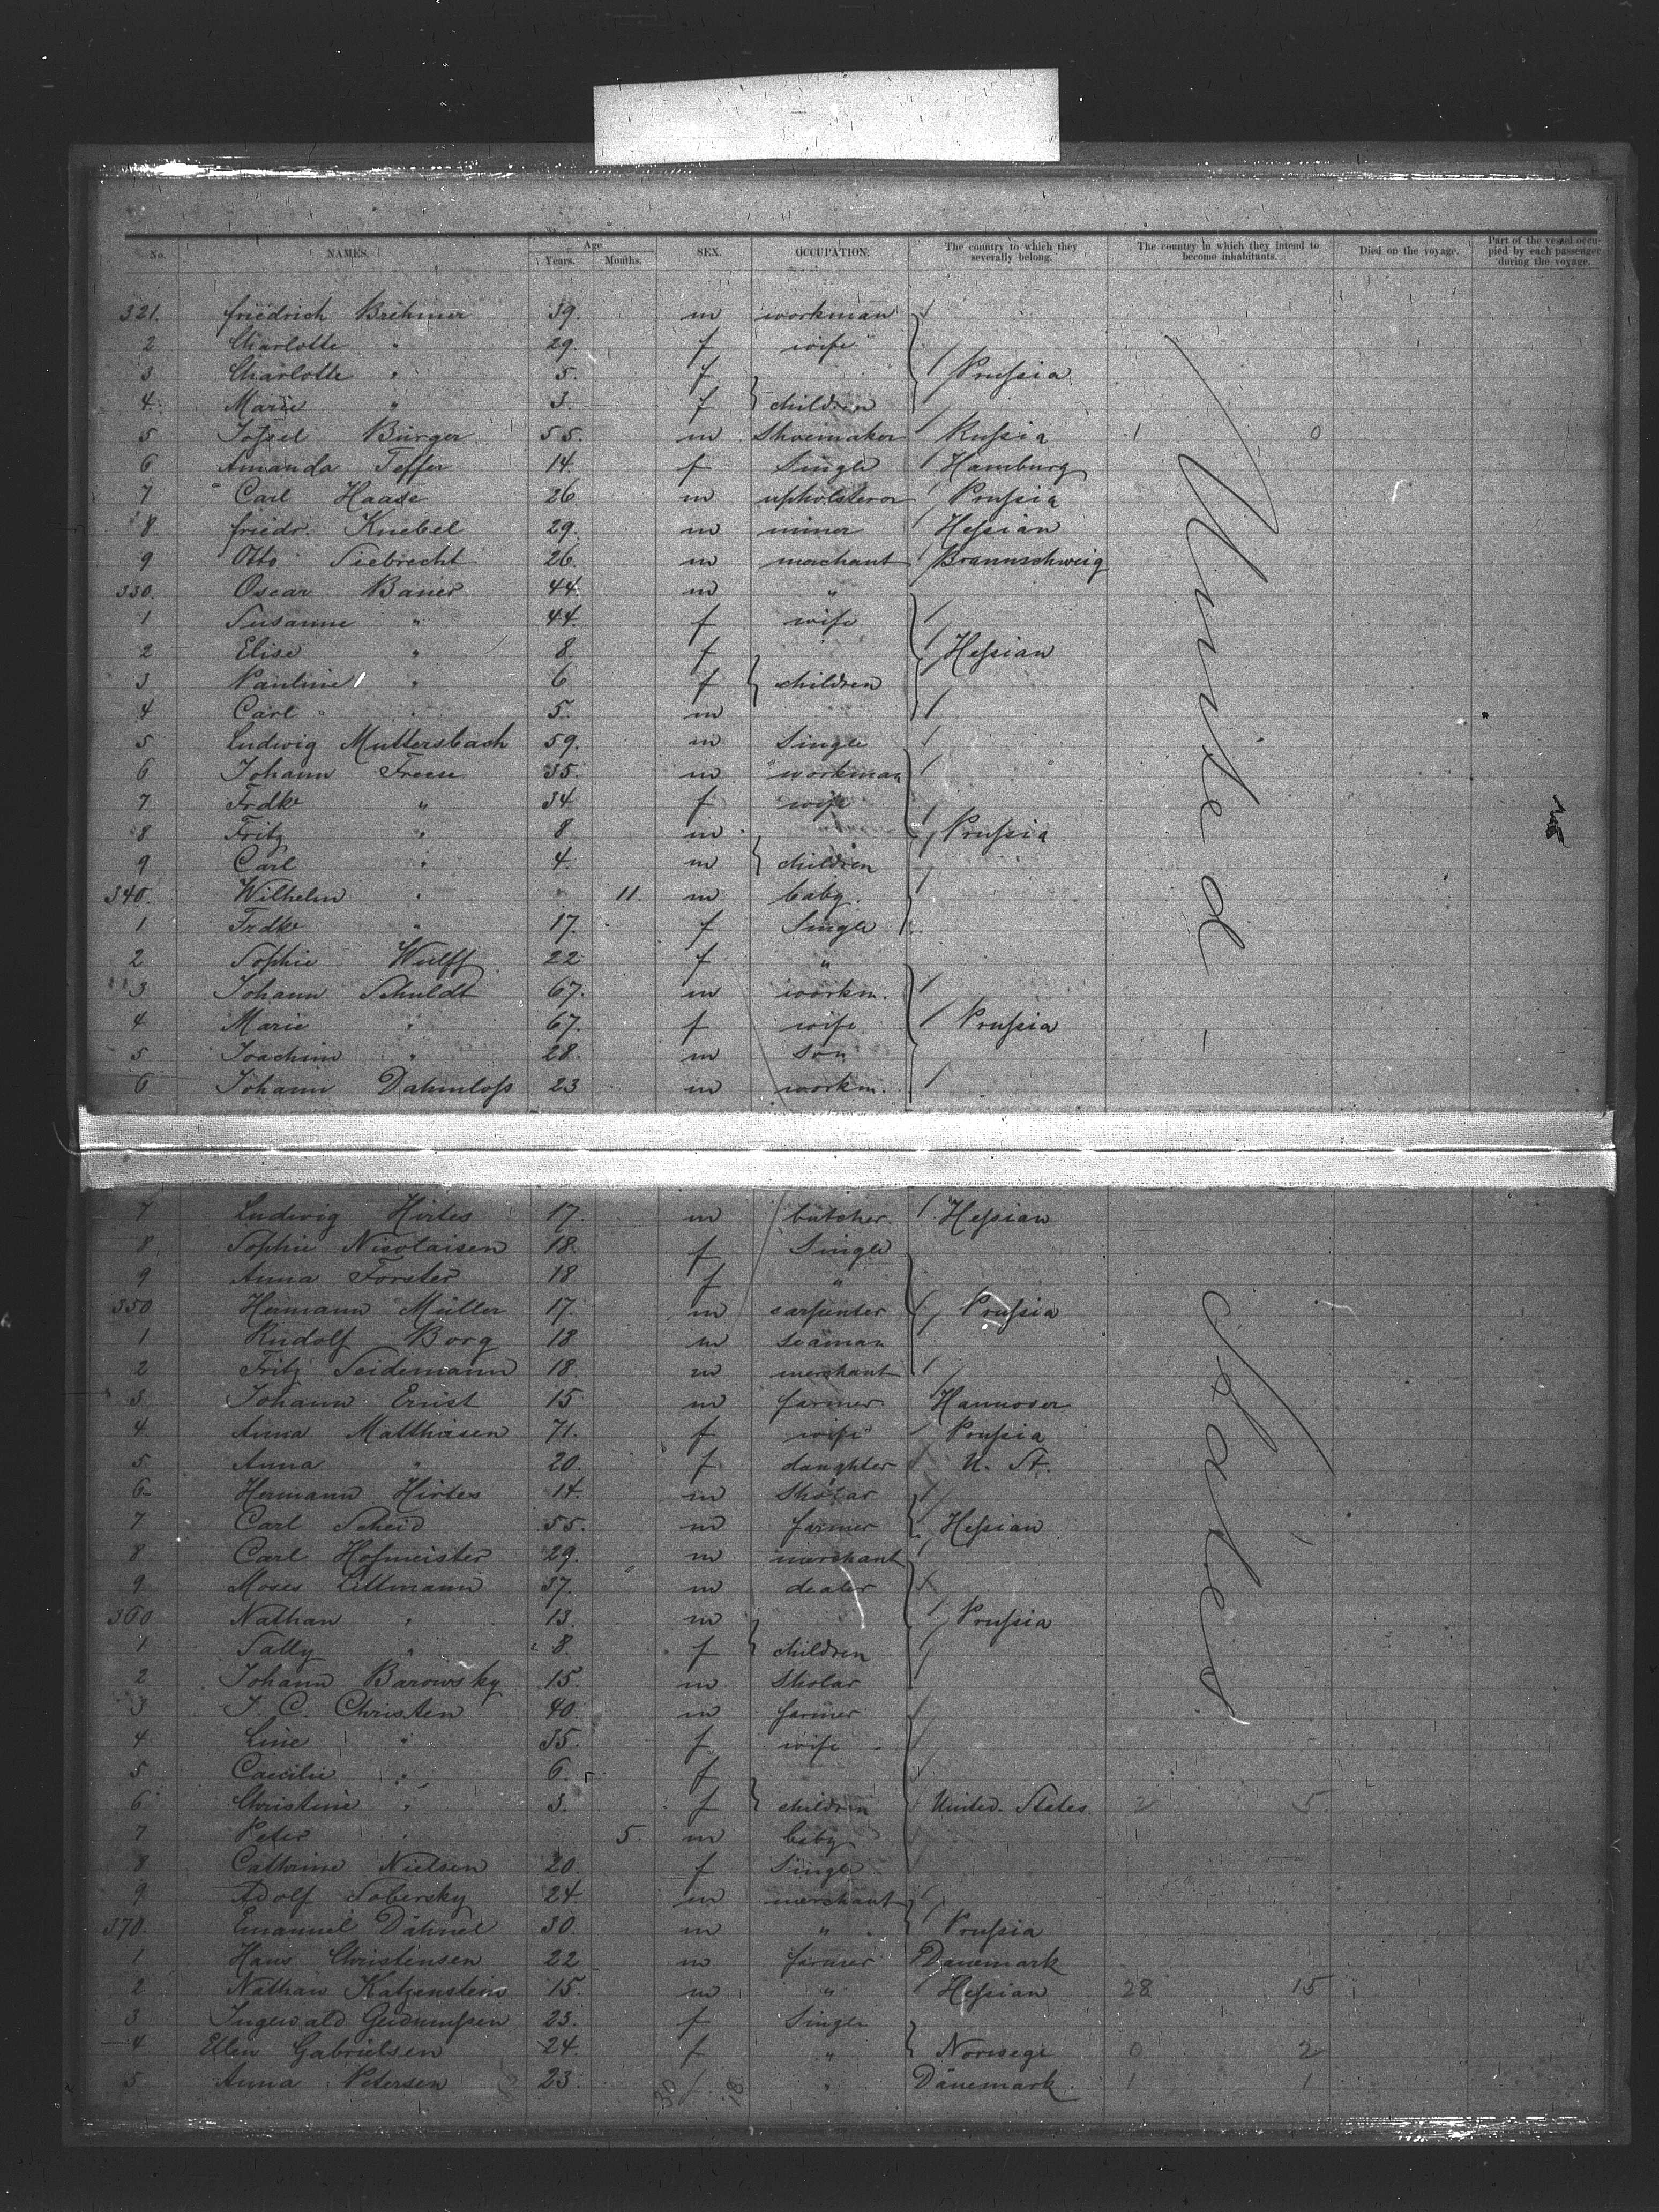 No. NAMES. Age Years. Months. SEX. OCCUPATION. The country to which they severally belong. The country in which they intend to become inhabitants. Died on the voyage. Part of the vessel occupied by each passenger during the voyage.
321. Friedrich Brehmer 39. m workman
2 Charlotte " 29. f wife
3 Charlotte " 5. f Prußia
4 Marie " 3. f children
5 Joßel Bürger 55. m Shoemaker Rußia 1 0
6 Amanda Teffer 14. f Single Hamburg
7 Carl Haase 26 m upholsteror Prußia
8 Friedr. Knebel 29. m miner Heßian
9 Otto Siebrecht 26. m merchant Braunschweig
330. Oscar Bauer 44. m "
1 Susanne " 44. f wife
2 Elise " 8. f Heßian
3 Pauline " 6 f children
4 Carl " 5. m
5 Ludwig Muttersbach 59. m Single
6 Johann Freese 35. m workman
7 Frdke " 34 f wife
8 Fritz " 8 m Prußia
9 Carl " 4. m children
340. Wilhelm " 11. m baby.
1 Frdke " 17. f Single
2 Sophie Wulff 22 f "
3 Johann Schuldt 67. m workm.
4 Marie " 67. f wife Prußia
5 Joachim " 28. m son
6 Johann Dahmloß 23 m workm.
7 Ludwig Hirtes 17. m butcher. Heßian
8 Sophie Nicolaisen 18. f Single
9 Anna Forster 18 f "
350 Hermann Müller 17. m carpenter Prußia
1 Rudolf Borg 18 m seaman
2 Fritz Seidemann 18. m merchant
3 Johann Ernst 15 m farmer Hannover
4 Anna Matthiesen 71. f wife Prußia
5 Anna " 20. f daughter U. St.
6 Hermann Hirtes 14. m Sholar
7 Carl Scheid 55. m farmer Heßian
8 Carl Hofmeister 29. m merchant
9 Moses Littmann 37. m dealer
360 Nathan " 13. m Prußia
1 Sally " 8. f children
2 Johann Barowsky 15. m Sholar
3 J. C. Christen 40. m farmer
4 Line " 35. f wife
5 Caecilie " 6. f
6 Christine " 3. f children United States 2 5
7 Peter " 5. m baby
8 Cathrine Nielsen 20. f Single
9 Adolf Sobersky 24. m merchant
370. Emanuel Dähnel 30. m " Prußia
1 Hans Christensen 22 m farmer Danemark
2 Nathan Katzenstein 15. m " Heßian 28 15
3 Ingewald 23. f Single
4 Ellen Gabrielsen 24. f " Norwege 0 2
5 Anna Petersen 23. f " Dänemark 1 1
30 18
United States